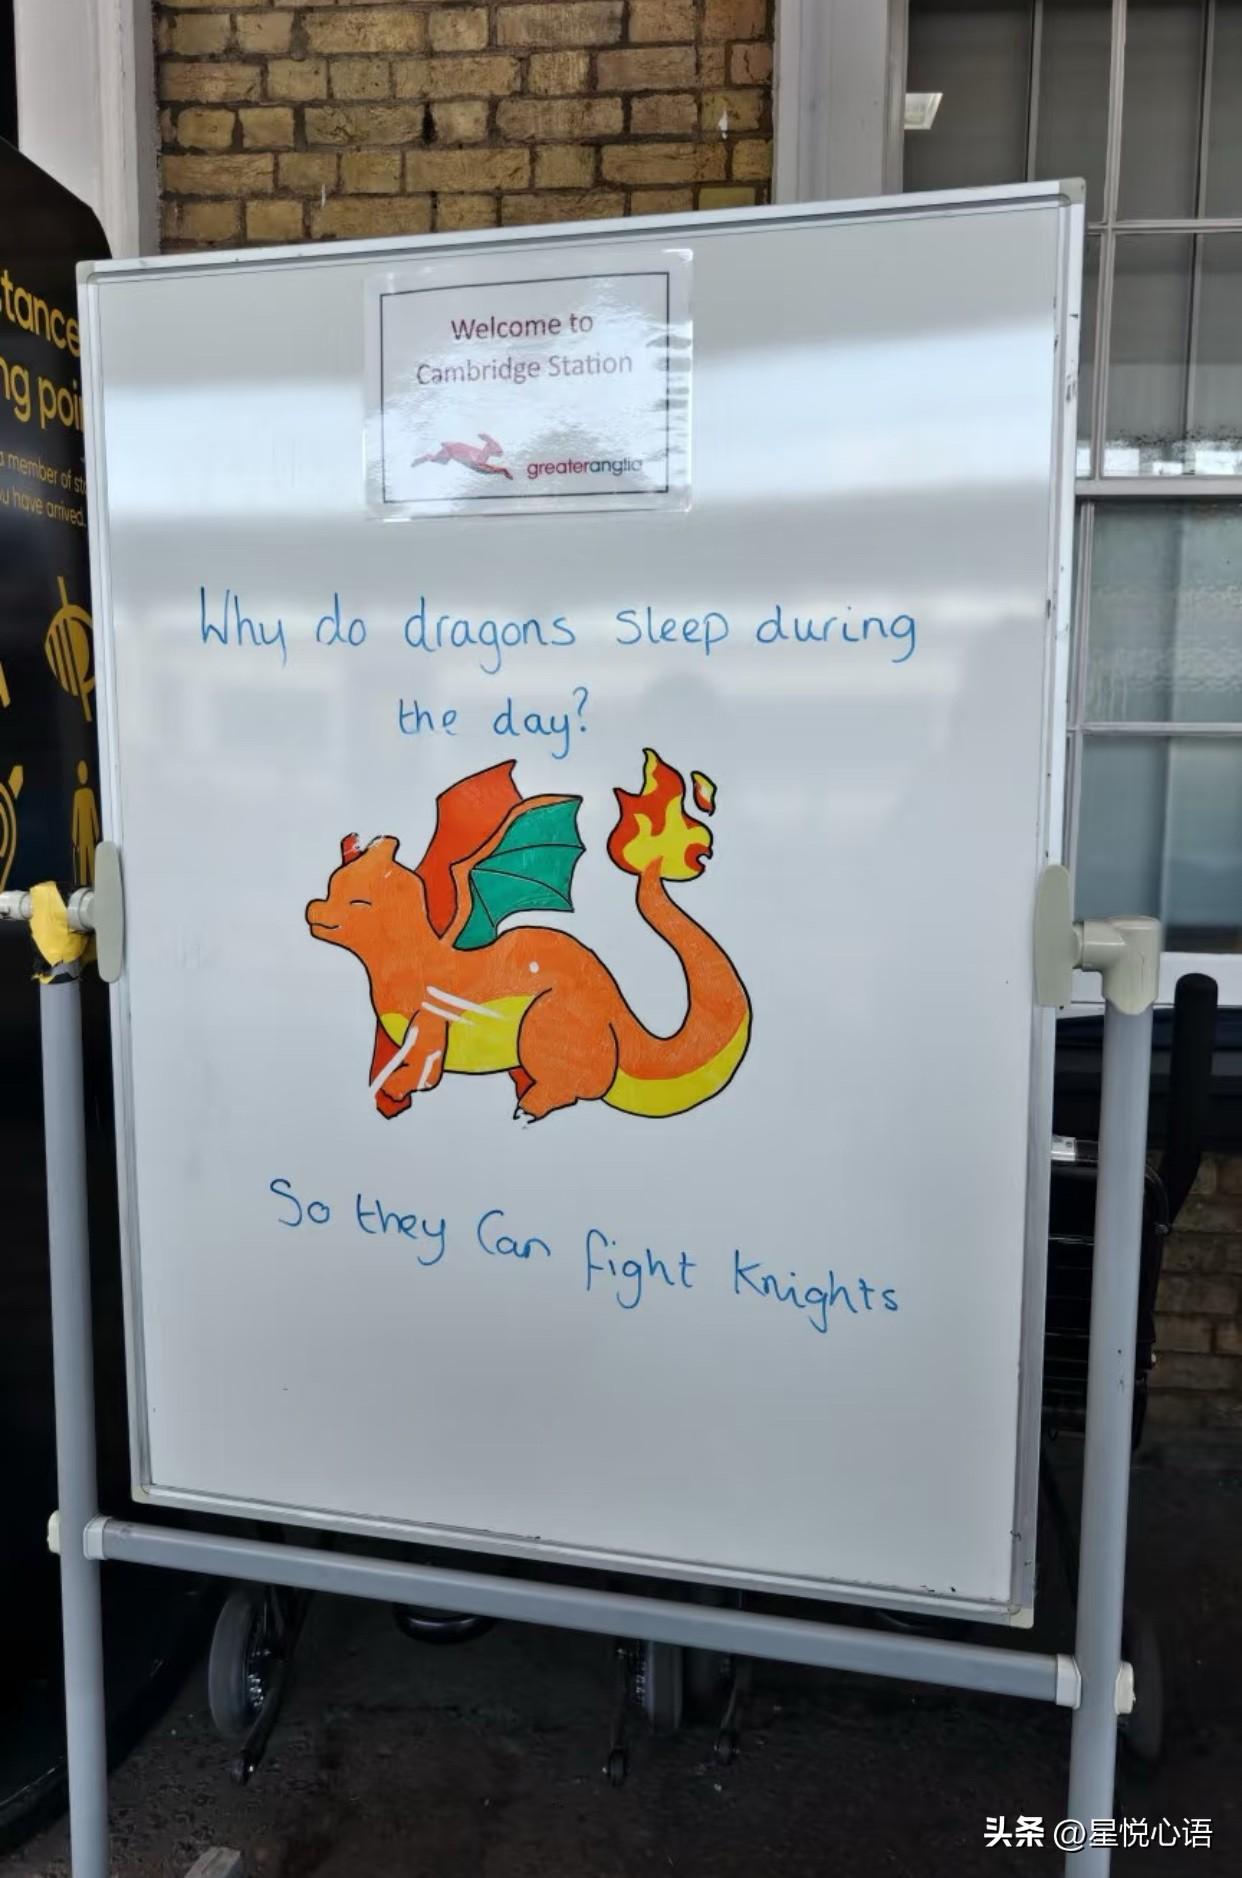 Welcome to
Cambridge Station
greateranglia
Why do dragons sleep during
the day?
So they Can fight Knights
tance
ng poi
a member of st
u have arrived.
头条 @星悦心语